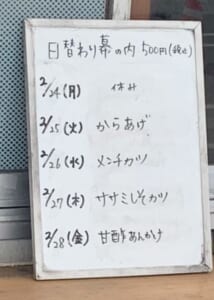 日替わり幕の内 500円(税込)
2/24(月) 休み
2/25(火) からあげ
2/26(水) メンチカツ
2/27(木) ササミしそカツ
2/28(金) 甘酢あんかけ